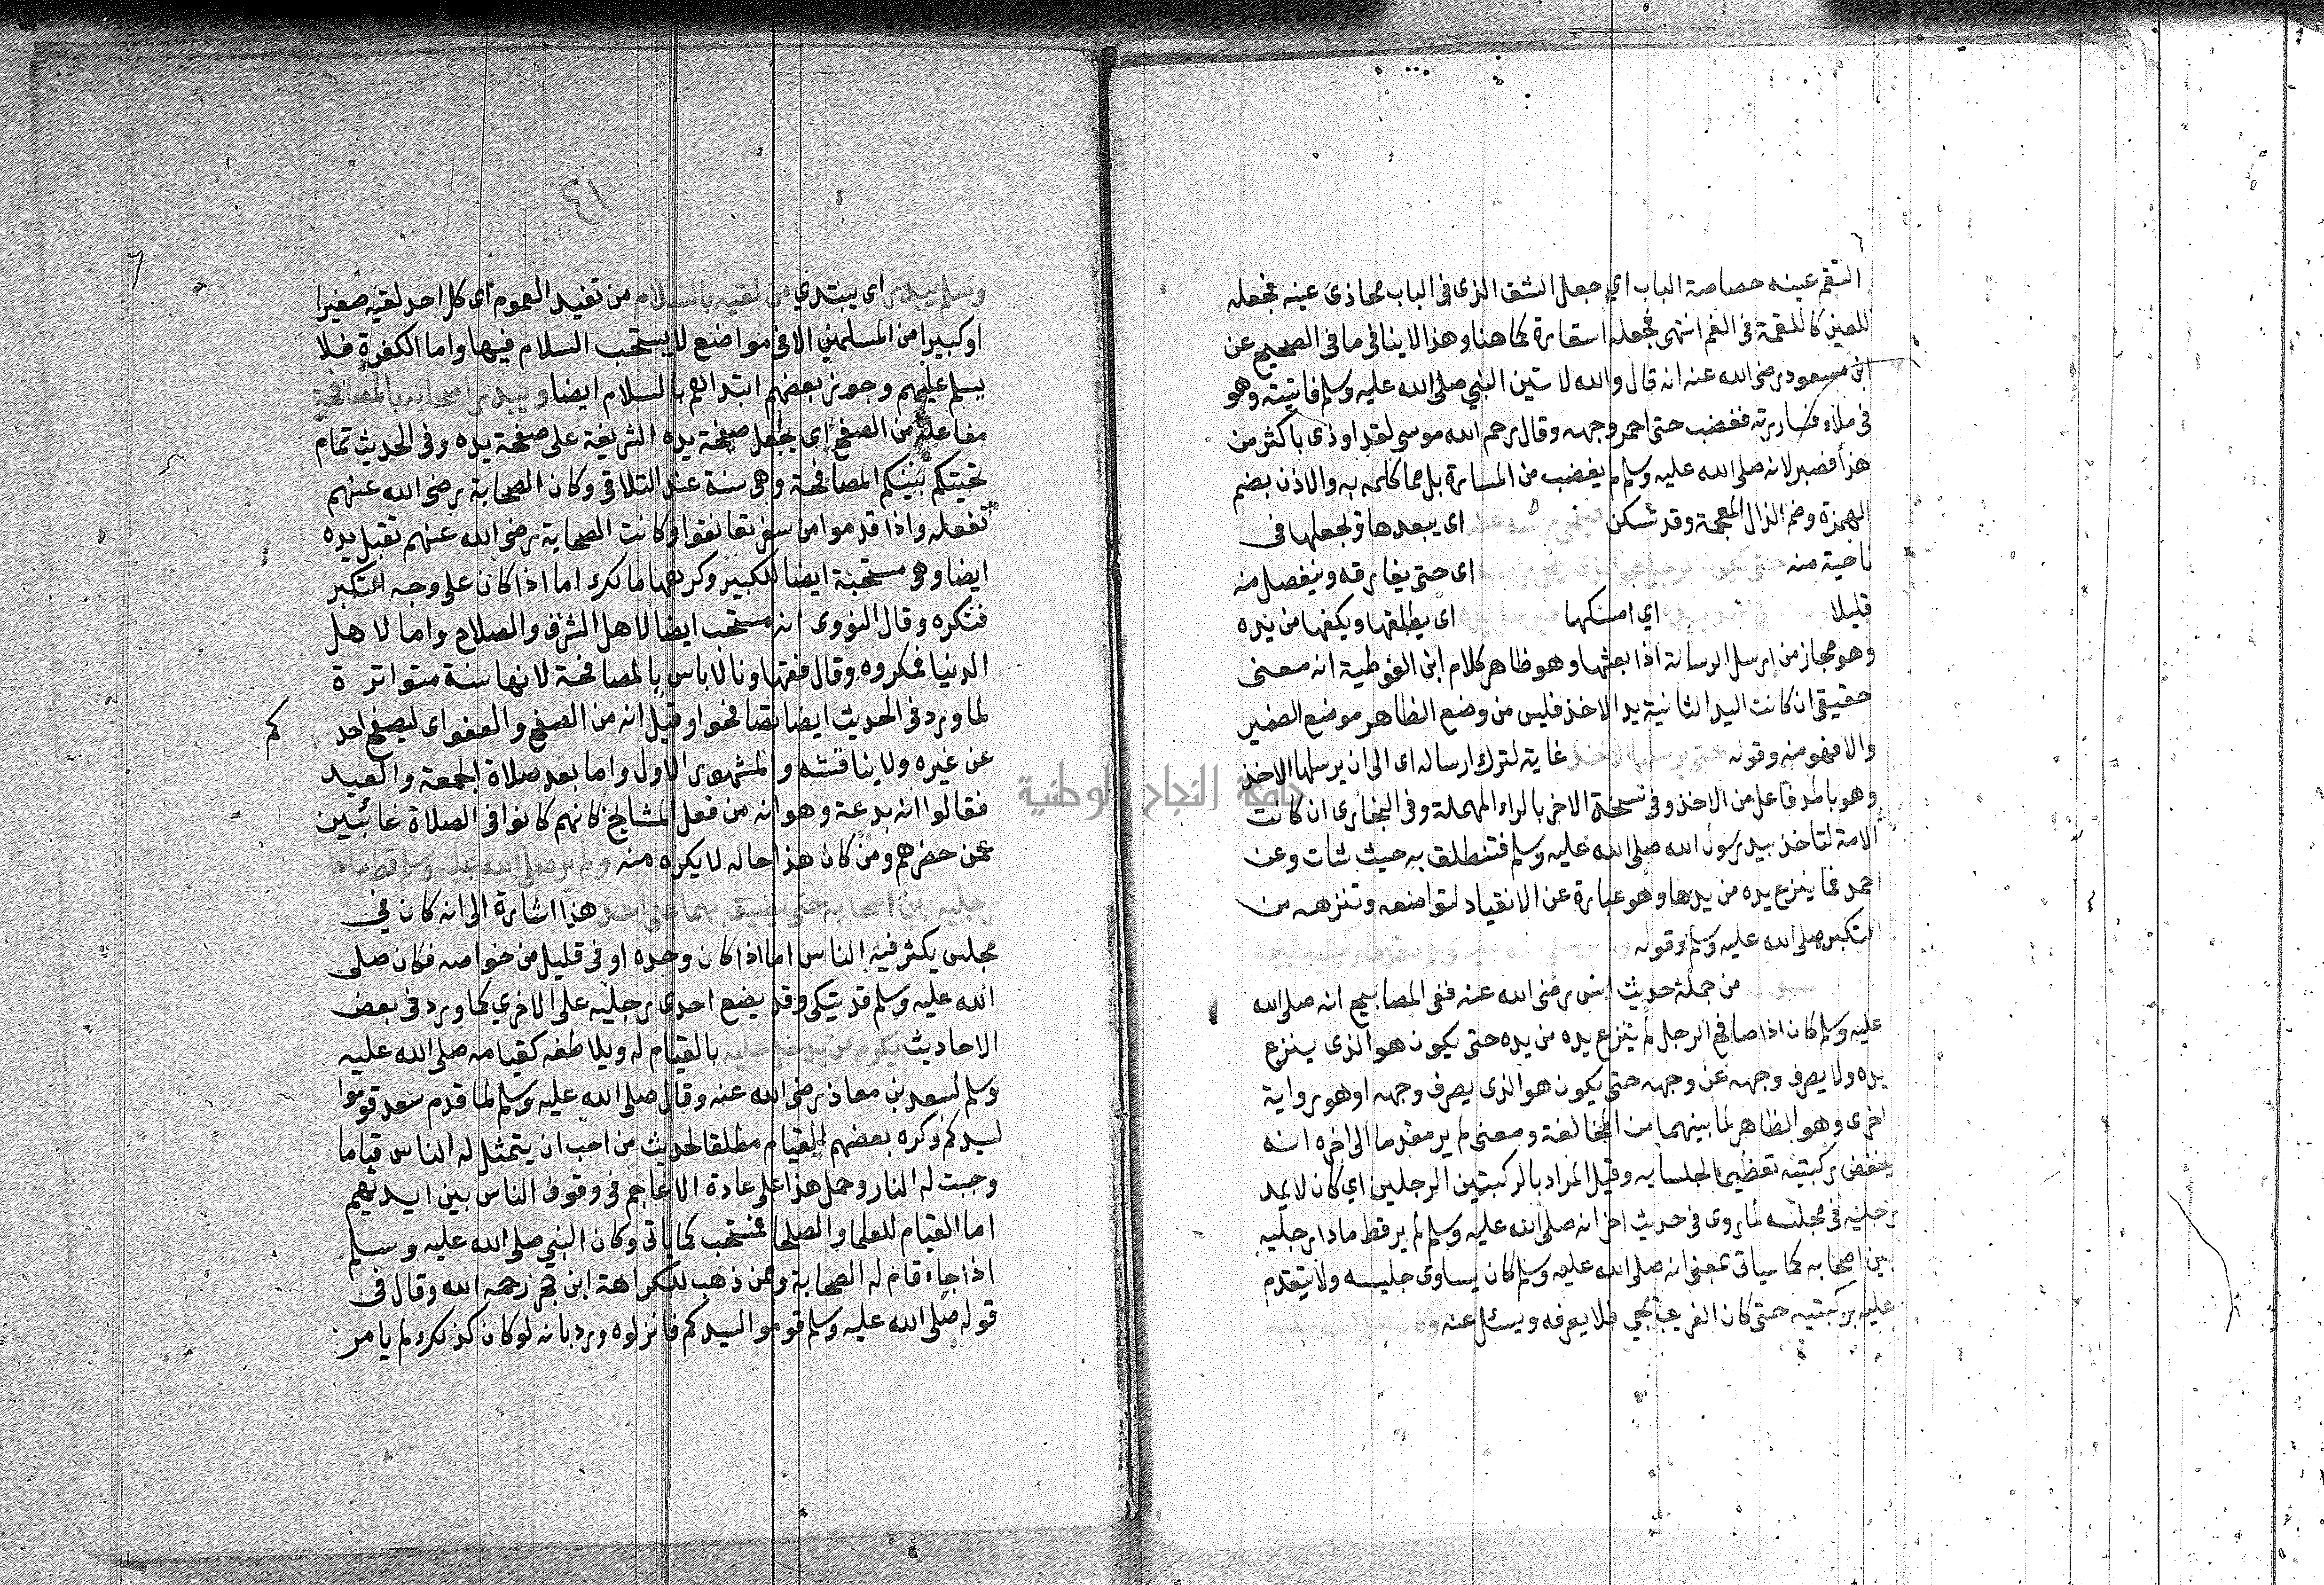 التقم عينه حصاصة الباب اي جعل الشق الذى فى الباب محاذى عينه بجعله
للعين كاللقمة فى الفم انتهى بجعله استعارة كما هنا وهذا لا ينافى ما فى الصحيح عن
ابن مسعود رضى الله عنه انه قال والله لاتين النبي صلى الله عليه وسلم فاتيته وهو
فى ملاء فساررته فغضب حتى احمر وجهه وقال رحم الله موسى لقد اوذى باكثر من
هذا فصبر لانه صلى الله عليه وسلم لم يغضب من المسارة بل مما كلمه به والاذن بضم
الهمزة وضم الذال المعجمة وقد تسكن فينحى راسه عنه اى يبعدها ويجعلها فى
ناحية منه حتى يكون الرجل هو الذى ينحى راسه اى حتى يفارقه وينفصل منه
قليلا اي امسكها اى يطلقها ويكفها من يده
وهو مجاز من ارسل الرسالة اذا بعثها وهو ظاهر كلام ابن القوطية انه معنى
حقيقى ان كانت اليد الثانية يد الاخذ فليس من وضع الظاهر موضع الضمير
والا فهو منه وقوله حتى يرسلها الاخذ غاية لترك ارساله اى الى ان يرسلها الاخذ
وهو بالمد فاعل من الاخذ وفى نسخة الاخر بالراء المهملة وفى البخارى ان كانت
الامة لتاخذ بيد رسول الله صلى الله عليه وسلم فتنطلق به حيث شات وعن
احمد فما ينزع يده من يدها وهو عبارة عن الانقياد لتواضعه وتنزهه من
التكبر صلى الله عليه وسلم وقوله
من جملة حديث انس رضى الله عنه ففى المصابيح انه صلى الله
عليه وسلم كان اذا صافح الرجل لم ينزع يده من يده حتى يكون هو الذى ينزع
يده ولا يصرف وجهه عن وجهه حتى يكون هو الذى يصرف وجهه او هو رواية
اخرى وهو الظاهر لما بينهما من المخالفة ومعنى لم ير مقدما الى اخره انه
يخفض ركبتيه تعظيما لجلسايه وقيل المراد بالركبتين الرجلين اي كان لا يمد
رجليه فى مجلسه لما روى فى حديث اخر انه صلى الله عليه وسلم لم ير قط مادا رجليه
بين اصحابه كما سياتى بمعنى انه صلى الله عليه وسلم كان يساوى جليسه ولا يتقدم
عليه بركبتيه حتى كان الغريب يجي فلا يعرفه ويسئل عنه وكان صلى الله عليه
١٤٦
وسلم يبدر اى يبتدي من لقيه بالسلام من تفيد العموم اى كل احد لقيه صغيرا
او كبيرا من المسلمين الا فى مواضع لا يستحب السلام فيها واما الكفرة فلا
يسلم عليهم وجوز بعضهم ابتداهم بالسلام ايضا ويبدر اصحابه بالمصافحة
مفاعلة من الصفح اى يجعل صفحة يده الشريفة على صفحة يده وفى الحديث تمام
تحيتكم بينكم المصافحة وهى سنة عند التلاقى وكان الصحابة رضى الله عنهم
تفعله واذا قدموا من سفر تعانقوا وكانت الصحابة رضى الله عنهم تقبل يده
ايضا وهو مستحبة ايضا للكبير وكرهها مالك اما اذا كان على وجه التكبر
فتكره وقال النووى انه مستحب ايضا لاهل الشرف والصلاح واما لاهل
الدنيا فمكروه وقال فقهاونا لا باس بالمصافحة لانها سنة متواترة
لما ورد فى الحديث ايضا تصافحوا وقيل انه من الصفح والعفو اى ليصفح احد كم
عن غيره ولا يناقشه والمشهور الاول واما بعد صلاة الجمعة والعيد
فقالوا انه بدعة وهو انه من فعل المشايخ كانهم كانوا فى الصلاة غائبين
عمن حضرهم ومن كان هذا حاله لا يكره منه ولم ير صلى الله عليه وسلم قط مادا
رجليه بين اصحابه حتى يضيق بهما على احد هذا اشارة الى انه كان في
مجلس يكثر فيه الناس اما اذا كان وحده او فى قليل من خواصه فكان صلى
الله عليه وسلم قد يتيكى وقد يضع احدى رجليه على الاخري كما ورد فى بعض
الاحاديث يكرم من يدخل عليه بالقيام له ويلاطفه كقيامه صلى الله عليه
وسلم لسعد بن معاذ رضى الله عنه وقال صلى الله عليه وسلم لما قدم سعد قوموا
لسيدكم وكره بعضهم القيام مطلقا لحديث من احب ان يتمثل له الناس قياما
وجبت له النار وحمل هذا على عادة الاعاجم فى وقوف الناس بين ايديهم
اما القيام للعلما والصلحا فمستحب كما ياتى وكان النبي صلى الله عليه وسلم
اذا جاء قام له الصحابة وممن ذهب للكراهة ابن حجر رحمه الله وقال فى
قوله صلى الله عليه وسلم قوموا لسيدكم فانزلوه ورد بانه لو كان كذلك لم يامر
جامعة النجاح الوطنية